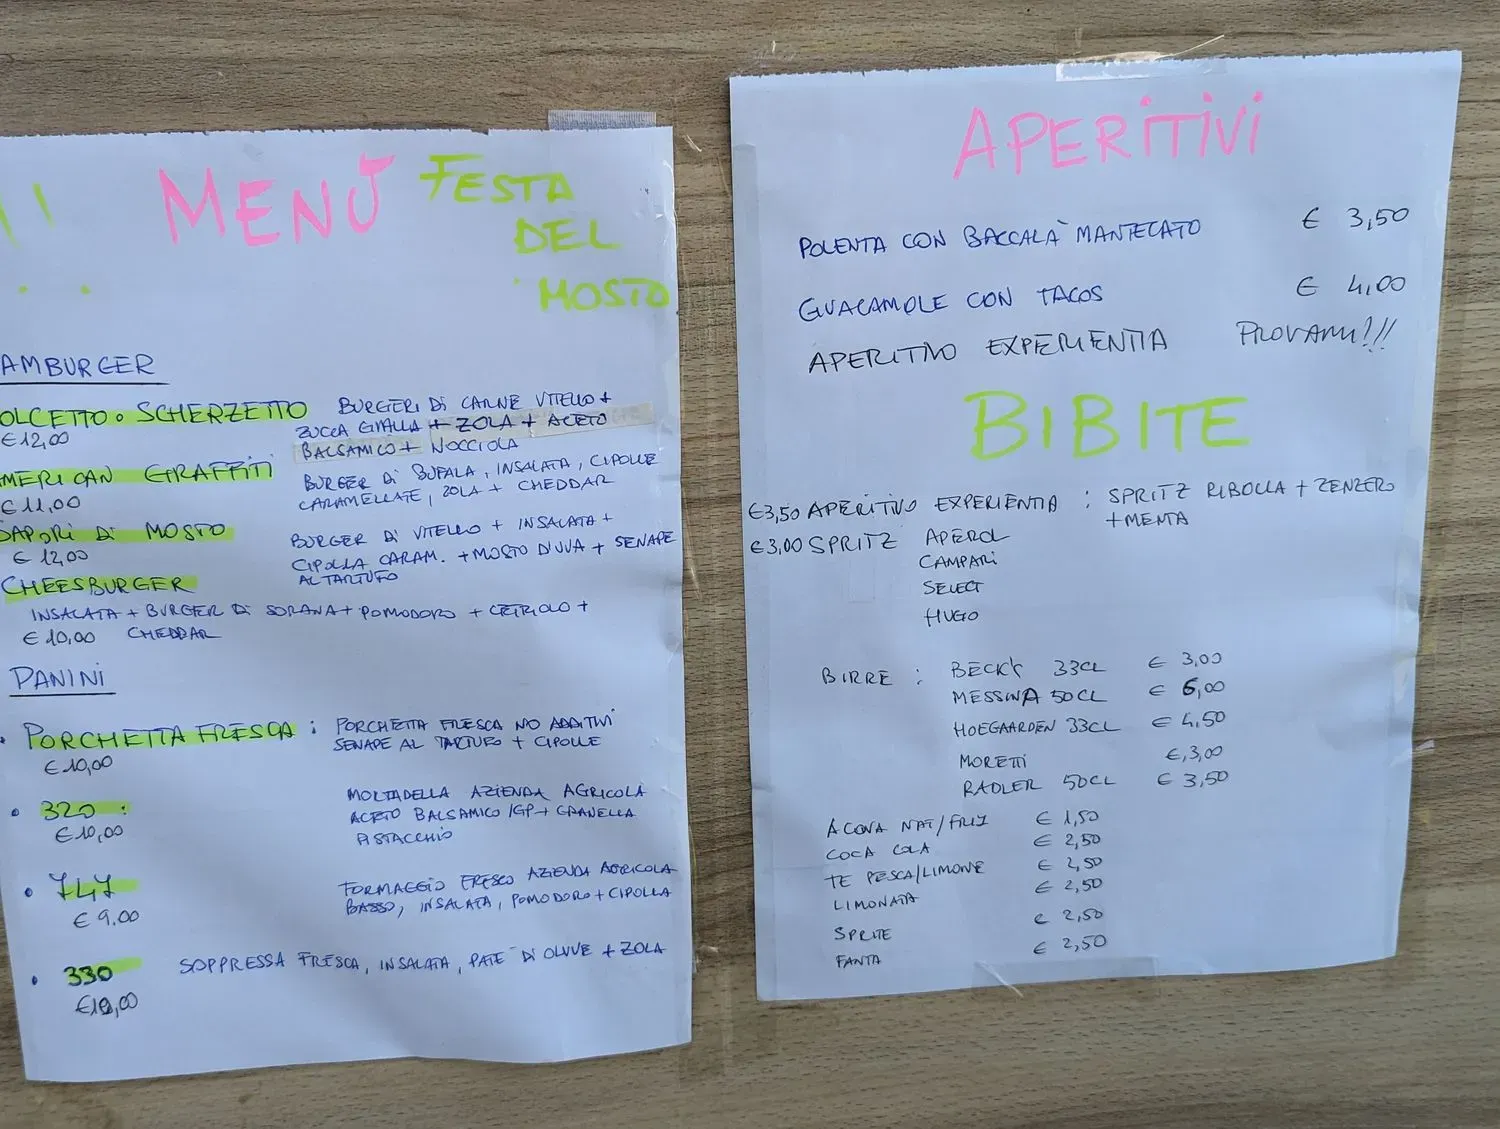 !!
MENÙ FESTA
DEL
MOSTO
AMBURGER
OLCETTO O SCHERZETTO BURGER DI CARNE VITELLO +
€ 12,00 ZUCCA GIALLA + ZOLA + ACETO
BALSAMICO + NOCCIOLA
MERICAN GRAFFITI BURGER DI BUFALA, INSALATA, CIPOLLE
€ 11,00 CARAMELLATE, ZOLA + CHEDDAR
SAPORI DI MOSTO BURGER DI VITELLO + INSALATA +
€ 12,00 CIPOLLA CARAM. + MOSTO D'UVA + SENAPE
AL TARTUFO
CHEESBURGER
INSALATA + BURGER DI SORANA + POMODORO + CETRIOLO +
€ 10,00 CHEDDAR
PANINI
• PORCHETTA FRESCA : PORCHETTA FRESCA NO ADDITIVI
SENAPE AL TARTUFO + CIPOLLE
€ 10,00
• 320 : MORTADELLA AZIENDA AGRICOLA
€ 10,00 ACETO BALSAMICO IGP + GRANELLA
PISTACCHIO
• 747 FORMAGGIO FRESCO AZIENDA AGRICOLA
€ 9,00 BASSO, INSALATA, POMODORO + CIPOLLA
• 330 SOPPRESSA FRESCA, INSALATA, PATE' DI OLIVE + ZOLA
€ 10,00
APERITIVI
POLENTA CON BACCALÀ MANTECATO € 3,50
GUACAMOLE CON TACOS € 4,00
APERITIVO EXPERIENTIA PROVAMI!!!
BIBITE
€3,50 APERITIVO EXPERIENTIA : SPRITZ RIBOLLA + ZENZERO
+ MENTA
€3,00 SPRITZ APEROL
CAMPARI
SELECT
HUGO
BIRRE : BECK'S 33CL € 3,00
MESSINA 50CL € 6,00
HOEGAARDEN 33CL € 4,50
MORETTI €,3,00
RADLER 50CL € 3,50
ACQUA NAT/FRIZ € 1,50
COCA COLA € 2,50
TE PESCA/LIMONE € 2,50
LIMONATA € 2,50
SPRITE € 2,50
FANTA € 2,50